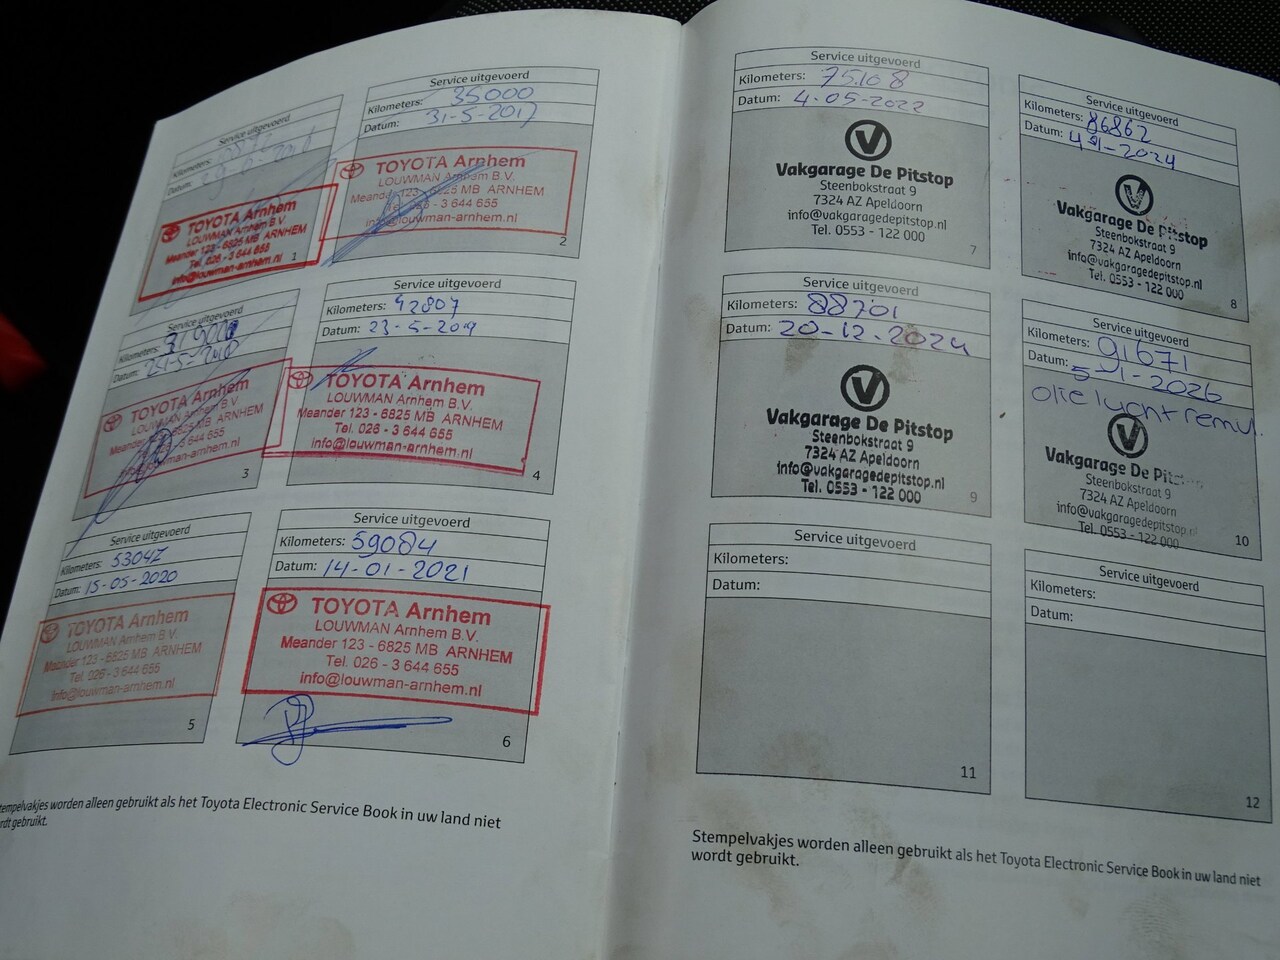 Service uitgevoerd
Kilometers:
Datum:
TOYOTA Arnhem
LOUWMAN Arnhem B.V.
Meander 123 - 6825 MB ARNHEM
Tel. 026 - 3 644 655
info@louwman-arnhem.nl
1
Service uitgevoerd
Kilometers: 35000
Datum: 31-5-2017
TOYOTA Arnhem
LOUWMAN Arnhem B.V.
Meander 123 - 6825 MB ARNHEM
Tel. 026 - 3 644 655
info@louwman-arnhem.nl
2
Service uitgevoerd
Kilometers:
Datum:
TOYOTA Arnhem
LOUWMAN Arnhem B.V.
Meander 123 - 6825 MB ARNHEM
Tel. 026 - 3 644 655
info@louwman-arnhem.nl
3
Service uitgevoerd
Kilometers: 42807
Datum: 23-5-2019
TOYOTA Arnhem
LOUWMAN Arnhem B.V.
Meander 123 - 6825 MB ARNHEM
Tel. 026 - 3 644 655
info@louwman-arnhem.nl
4
Service uitgevoerd
Kilometers: 53047
Datum: 15-05-2020
TOYOTA Arnhem
LOUWMAN Arnhem B.V.
Meander 123 - 6825 MB ARNHEM
Tel. 026 - 3 644 655
info@louwman-arnhem.nl
5
Service uitgevoerd
Kilometers: 59084
Datum: 14-01-2021
TOYOTA Arnhem
LOUWMAN Arnhem B.V.
Meander 123 - 6825 MB ARNHEM
Tel. 026 - 3 644 655
info@louwman-arnhem.nl
6
tempelvakjes worden alleen gebruikt als het Toyota Electronic Service Book in uw land niet
rdt gebruikt.
Service uitgevoerd
Kilometers: 75.108
Datum: 4-05-2022
Vakgarage De Pitstop
Steenbokstraat 9
7324 AZ Apeldoorn
info@vakgaragedepitstop.nl
Tel. 0553 - 122 000
7
Service uitgevoerd
Kilometers: 86862
Datum: 2024
Vakgarage De Pitstop
Steenbokstraat 9
7324 AZ Apeldoorn
info@vakgaragedepitstop.nl
Tel. 0553 - 122 000
8
Service uitgevoerd
Kilometers: 88701
Datum: 20-12-2024
Vakgarage De Pitstop
Steenbokstraat 9
7324 AZ Apeldoorn
info@vakgaragedepitstop.nl
Tel. 0553 - 122 000
9
Service uitgevoerd
Kilometers: 91671
Datum: 5-1-2026
olie lucht remvl.
Vakgarage De Pitstop
Steenbokstraat 9
7324 AZ Apeldoorn
info@vakgaragedepitstop.nl
Tel. 0553 - 122 000
10
Service uitgevoerd
Kilometers:
Datum:
11
Service uitgevoerd
Kilometers:
Datum:
12
Stempelvakjes worden alleen gebruikt als het Toyota Electronic Service Book in uw land niet
wordt gebruikt.